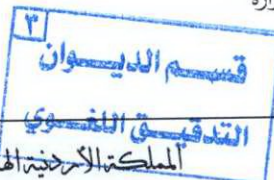 ٣
قسم الديوان
التدقيق اللغوي
المملكة الأردنية